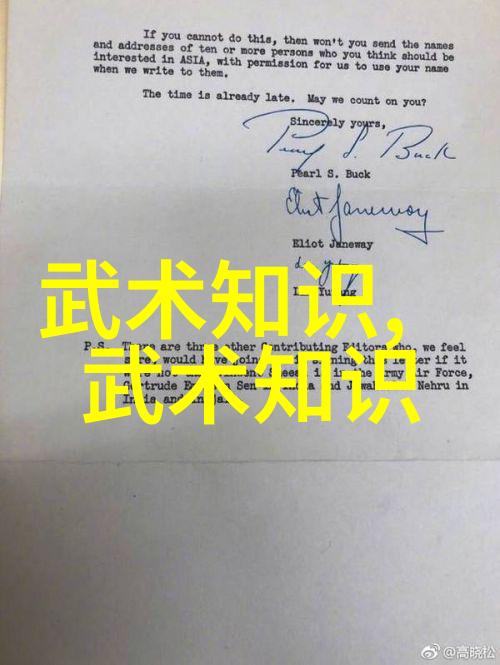 If you cannot do this, then won't you send the names
and addresses of ten or more persons who you think should be
interested in ASIA, with permission for us to use your name
when we write to them.
The time is already late. May we count on you?
Sincerely yours,
Pearl S. Buck
Pearl S. Buck
Eliot Janeway
Eliot Janeway
武术知识,
武术知识
P.S. There are three other Contributing Editors who, we feel
would have joined in signing this letter if it
in the Army Air Force,
Gertrude Sen India and Nehru in
@高晓松